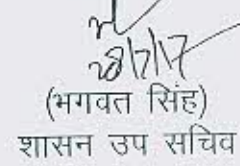 28/7/17
(भगवत सिंह)
शासन उप सचिव